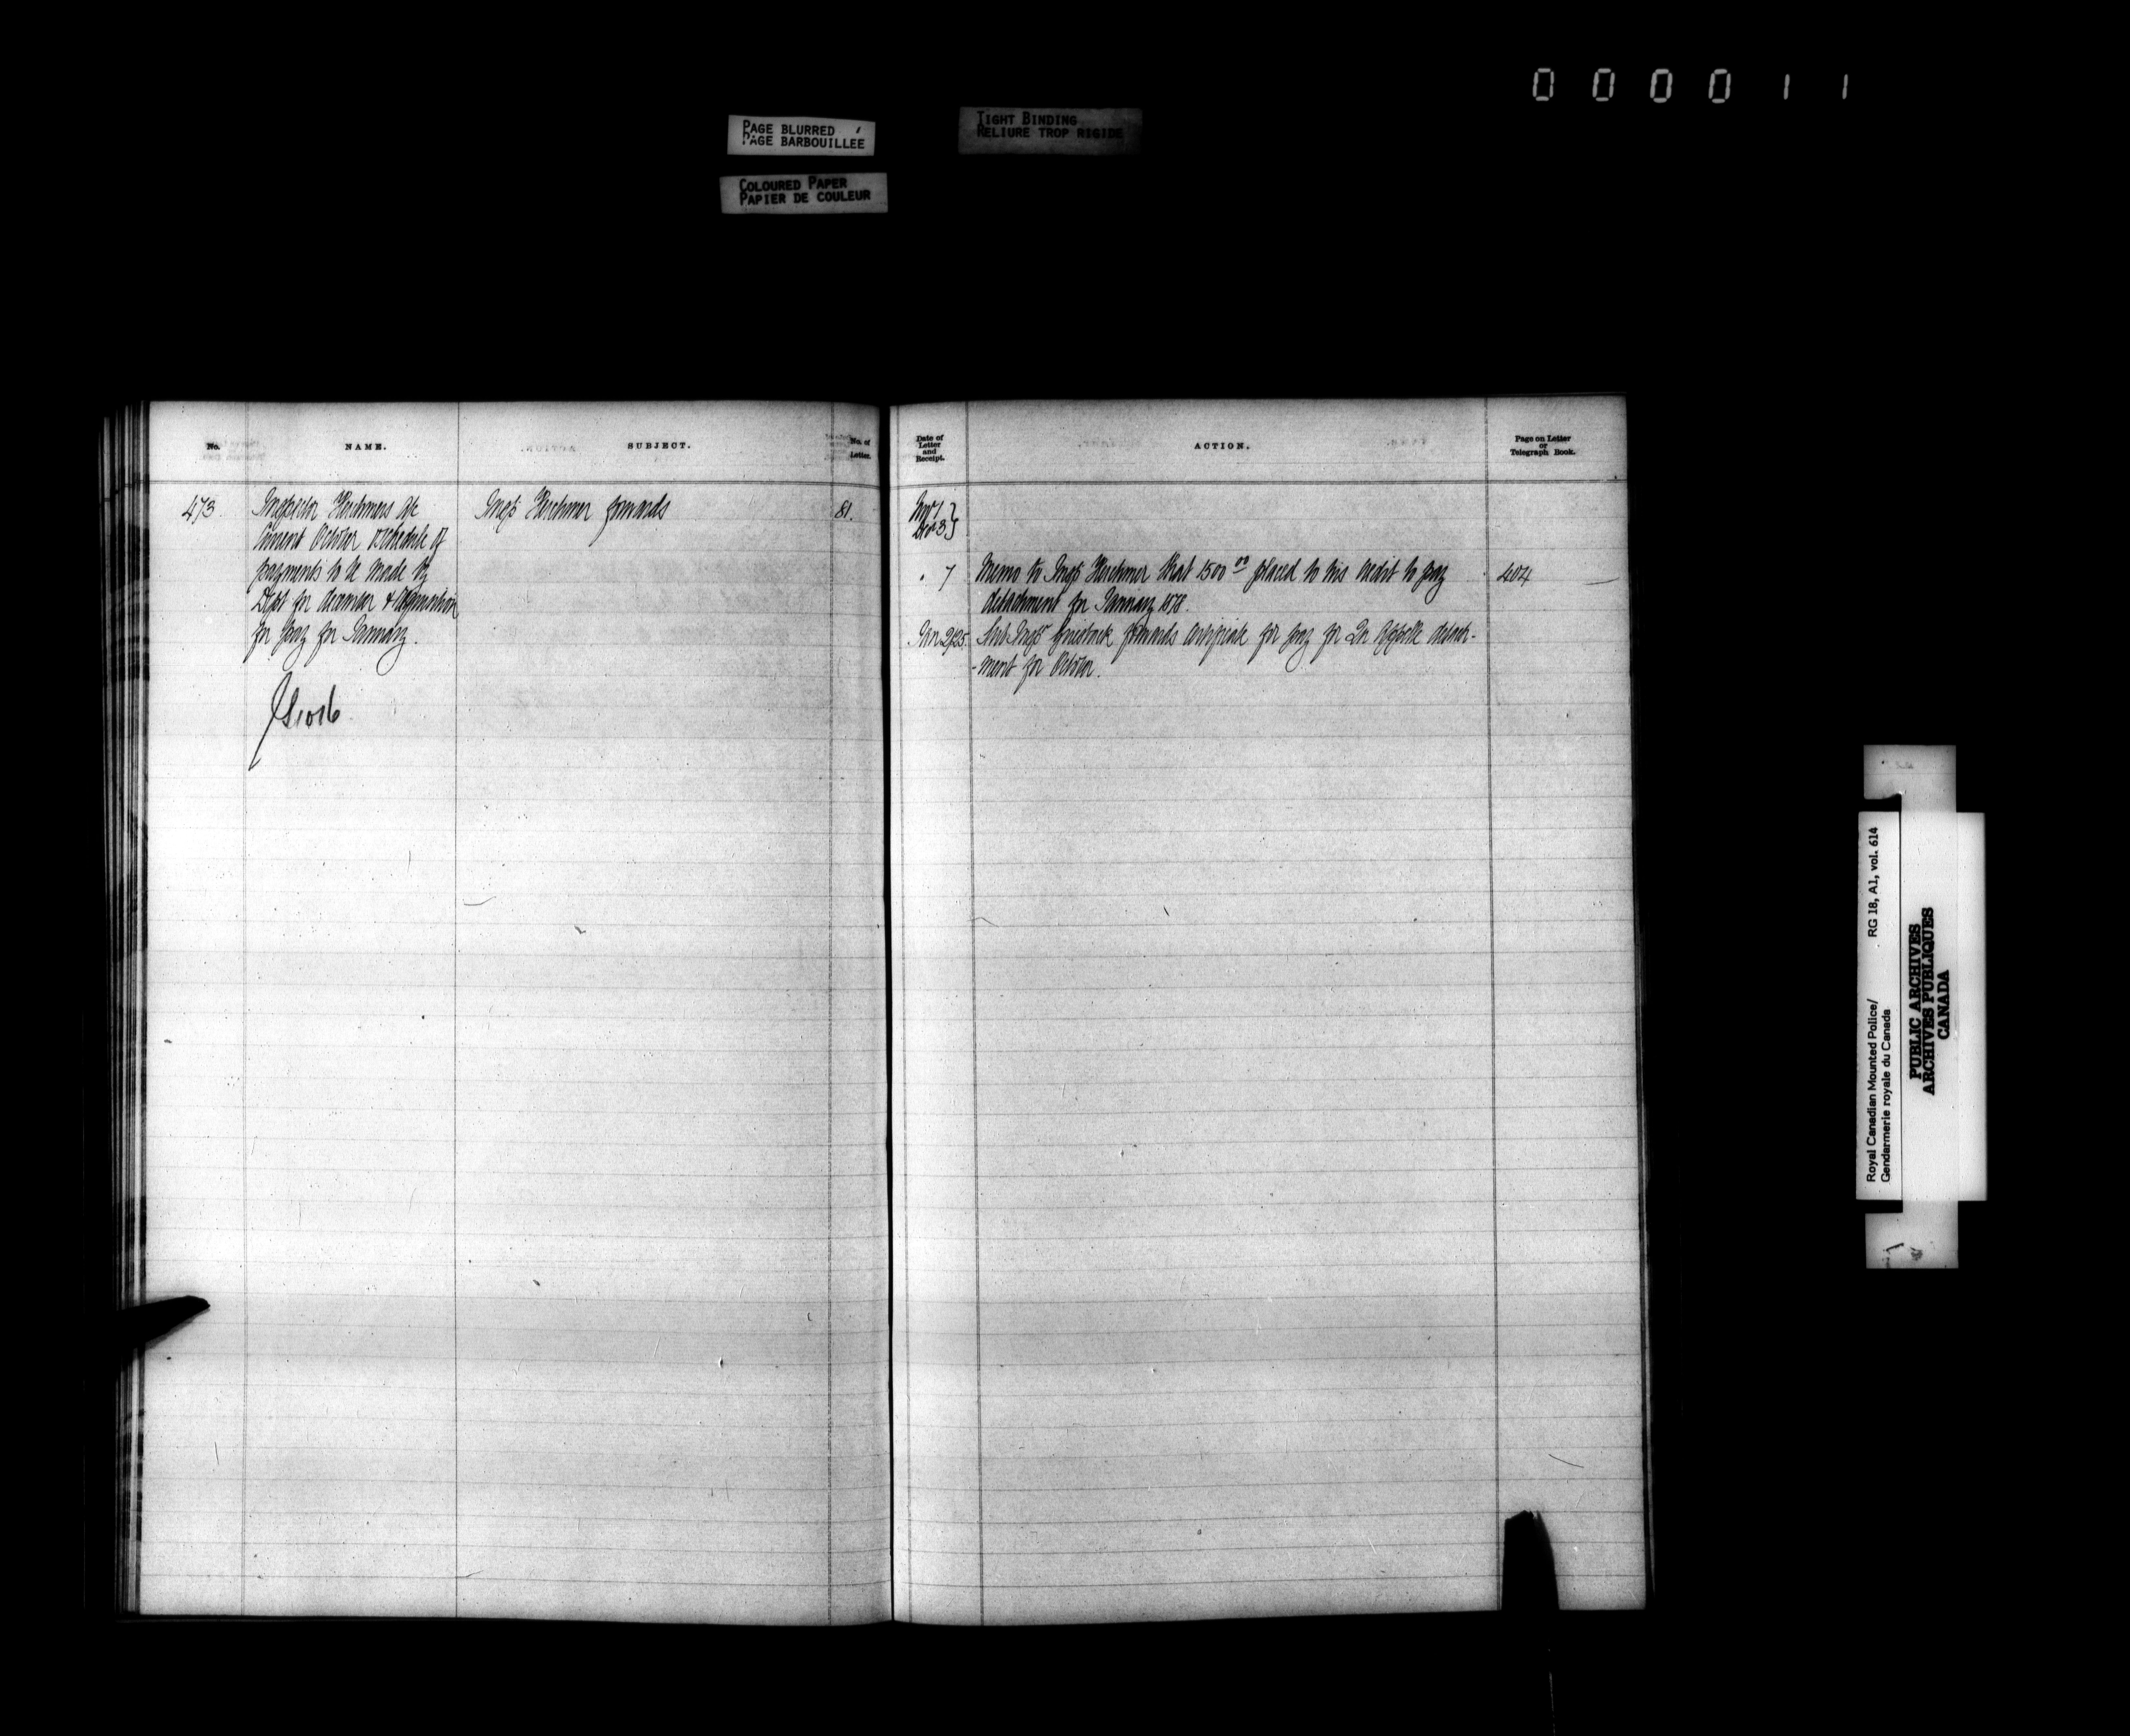 000011
PAGE BLURRED
PAGE BARBOUILLEE
TIGHT BINDING
RELIURE TROP RIGIDE
COLOURED PAPER
PAPIER DE COULEUR
No.
NAME.
SUBJECT.
No. of
Letter.
Date of
Letter
and
Receipt.
ACTION.
Page on Letter
or
Telegraph Book.
473
Inspector Herchmers
October & Schedule of
payments to be made by
Dept for December &
for pay for January.
Insp Herchmer forwards
81.
Nov 1
Dec 3
" 7
Memo to Insp Herchmer that 1500 00 placed to his credit to pay
detachment for January 1878.
404
Jan 2/25
Sub Insp forwards certificate for pay for Qu Appelle detach-
-ment for October.
Royal Canadian Mounted Police/
Gendarmerie royale du Canada
RG 18, A1, vol. 614
PUBLIC ARCHIVES
ARCHIVES PUBLIQUES
CANADA